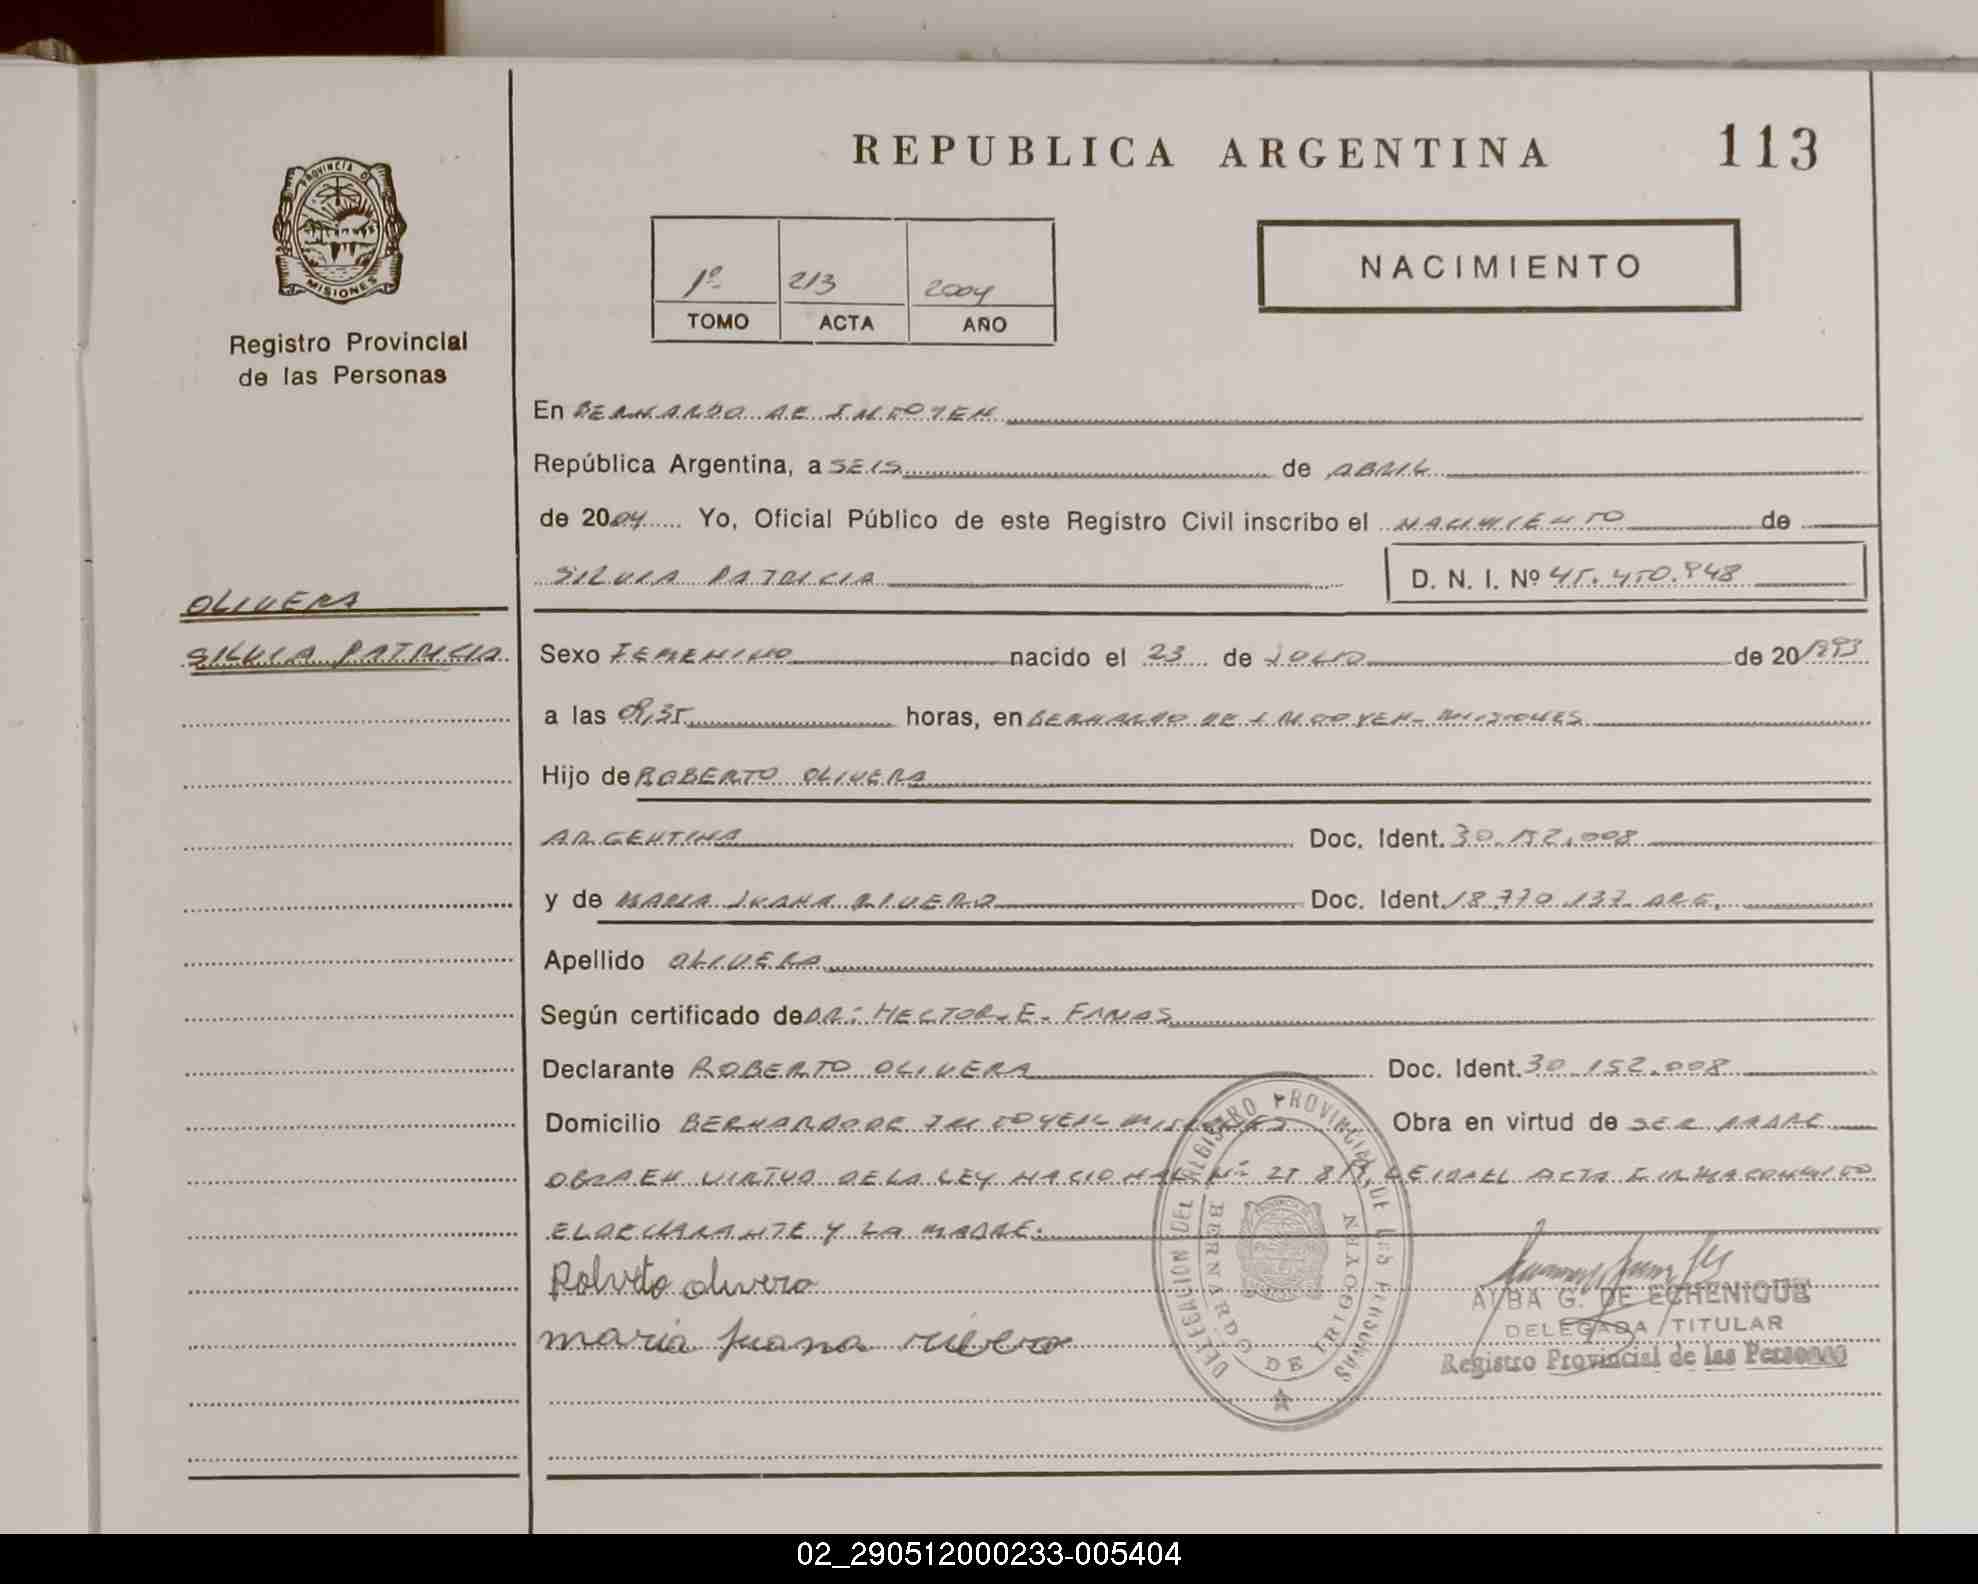 PROVINCIA DE
MISIONES
Registro Provincial
de las Personas
REPUBLICA ARGENTINA 113
1º 213 2004
TOMO ACTA AÑO
NACIMIENTO
En BERNARDO DE IRIGOYEN
República Argentina, a SEIS de ABRIL
de 2004 Yo, Oficial Público de este Registro Civil inscribo el NACIMIENTO de
SILVIA PATRICIA D. N. I. Nº 45.450.948
OLIVERA
SILVIA PATRICIA
Sexo FEMENINO nacido el 23 de JULIO de 20 1993
a las 09,35 horas, en BERNARDO DE IRIGOYEN - MISIONES
Hijo de ROBERTO OLIVERA
ARGENTINA Doc. Ident. 30.152.008
y de MARIA JUANA RIVERO Doc. Ident. 18.770.137 ARG.
Apellido OLIVERA
Según certificado de DR: HECTOR E.
Declarante ROBERTO OLIVERA Doc. Ident. 30.152.008
Domicilio BERNARDO DE IRIGOYEN MISIONES Obra en virtud de SER PADRE
OBRA EN VIRTUD DE LA LEY NACIONAL Nº LEIDA EL ACTA FIRMA CONMIGO
EL DECLARANTE Y LA MADRE.
Rolveto olivera
maria Juana rivero
DELEGACION DEL REGISTRO PROVINCIAL DE LAS PERSONAS
BERNARDO DE IRIGOYEN
ALBA G. DE ECHENIQUE
DELEGADA TITULAR
Registro Provincial de las Personas
02_290512000233-005404